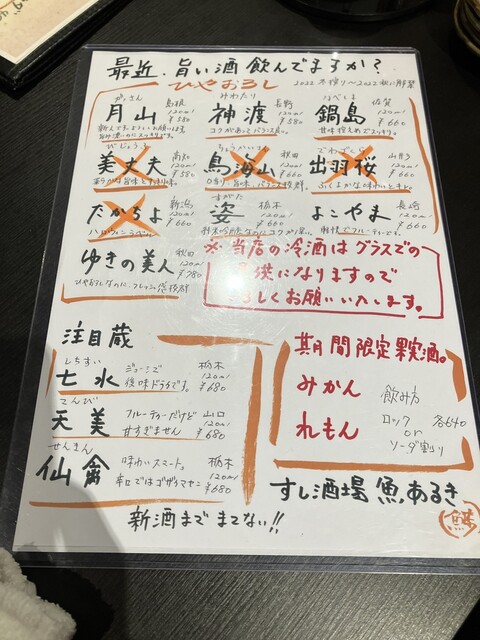 最近、旨い酒飲んでますか?
ひやおろし
2022 冬搾り〜2022秋に解禁
がっさん
月山
島根
120ml
¥580
みわたり
神渡
長野
120ml
¥580
コクがあってバランス良し。
なべしま
鍋島
佐賀
120ml
¥660
甘味控えめでスッキリ。
びじょうふ
美丈夫
高知
120ml
¥580
ちょうかいさん
鳥海山
秋田
120ml
¥660
でわざくら
出羽桜
山形
120ml
¥660
たかちよ
新潟
120ml
¥660
すがた
姿
栃木
120ml
¥660
よこやま
長崎
120ml
¥660
ゆきの美人
秋田
120ml
¥780
※当店の冷酒はグラスでの
供になりますので
しくお願いいたします。
注目蔵
しちすい
七水
ジューシーで
後味ドライです。
栃木
120ml
¥680
てんび
天美
フルーティーだけど
甘すぎません
山口
120ml
¥680
せんきん
仙禽
味わいスマート。
栃木
120ml
¥680
期間限定果実酒。
みかん
れもん
飲み方
ロック
or
ソーダ割り
各640
すし酒場 魚、あるき
新酒まで まてない!!